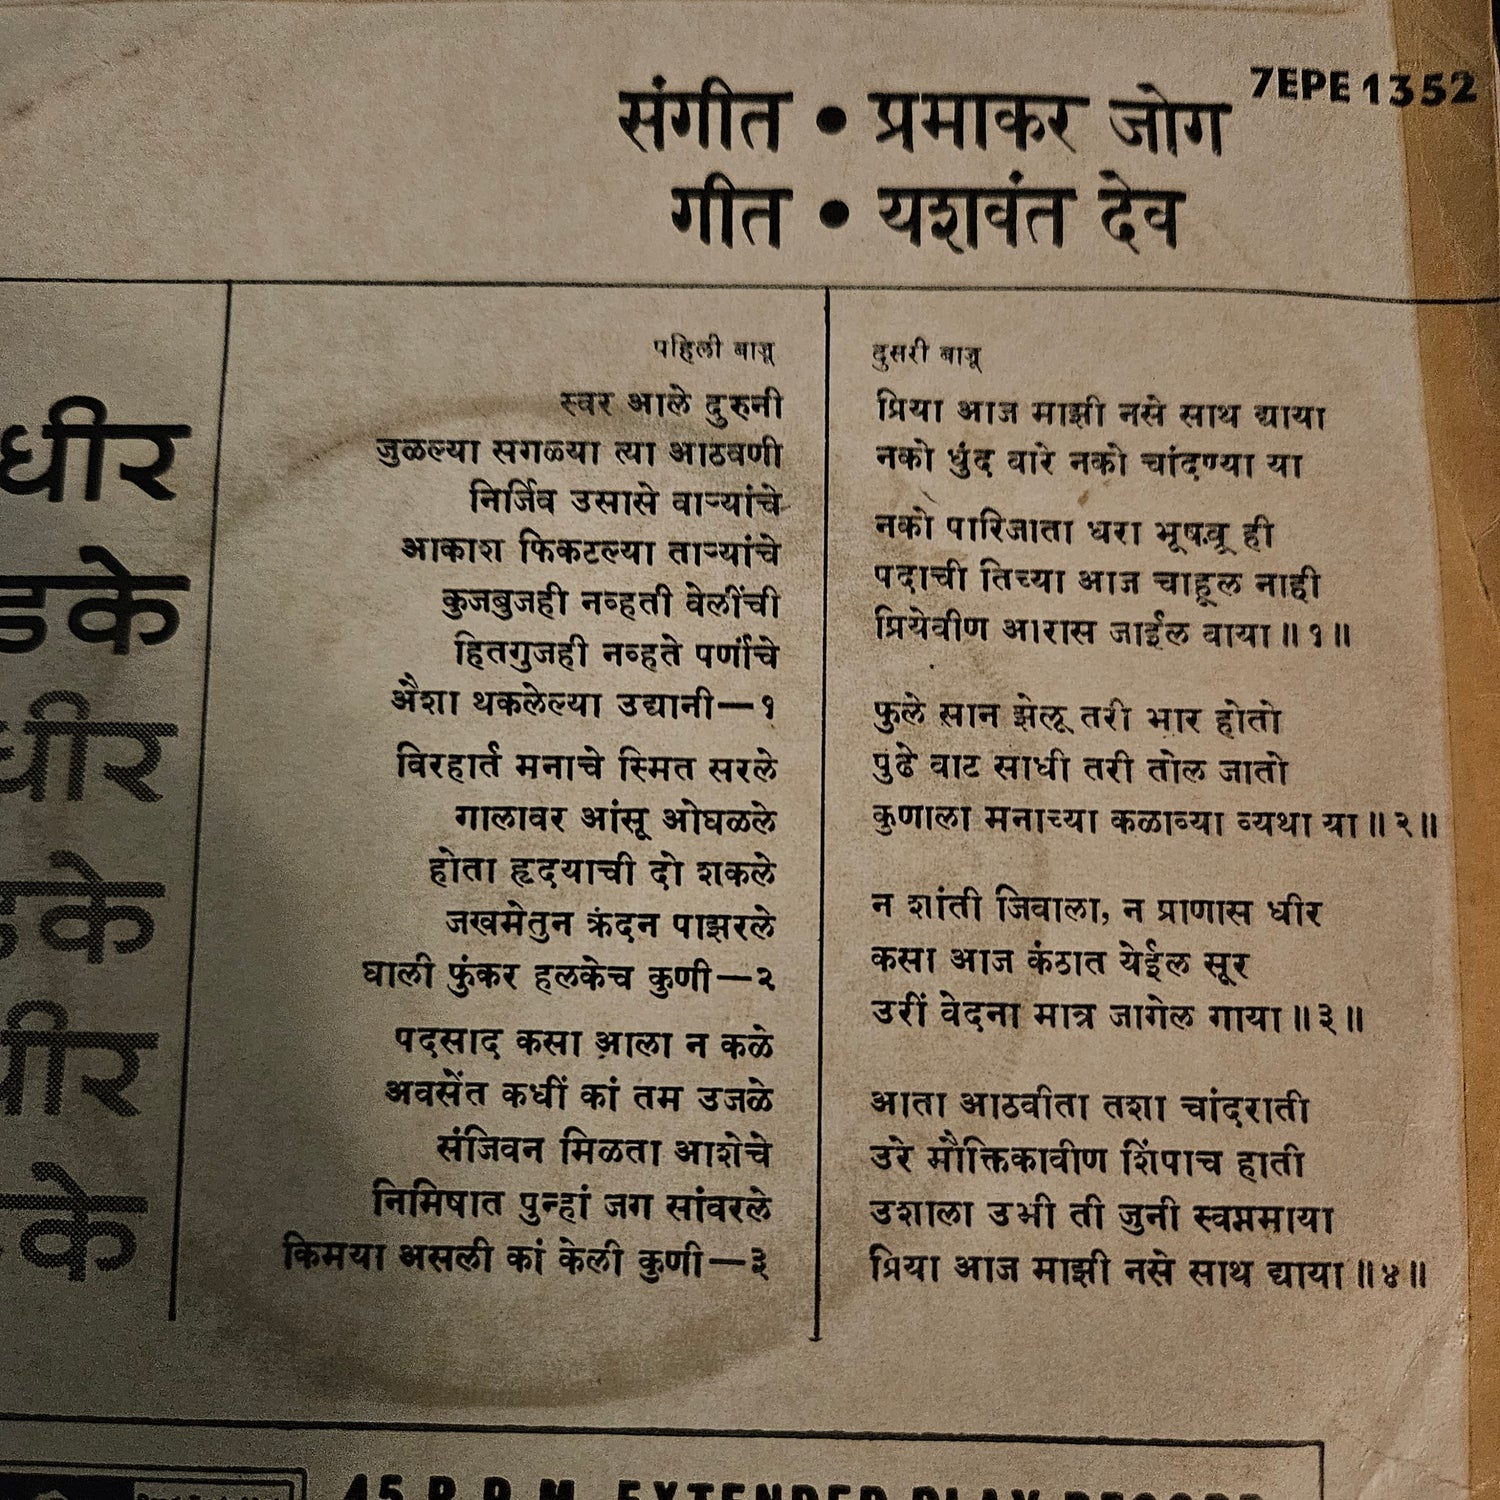 7EPE 1352
संगीत • प्रभाकर जोग
गीत • यशवंत देव
धीर
डके
धीर
डके
धीर
के
पहिली बाजू
स्वर आले दुरुनी
जुळल्या सगळ्या त्या आठवणी
निर्जिव उसासे वाऱ्यांचे
आकाश फिकटल्या ताऱ्यांचे
कुजबुजही नव्हती वेलींची
हितगुजही नव्हते पर्णांचे
अैशा थकलेल्या उद्यानी—१
विरहार्त मनाचे स्मित सरले
गालावर आंसू ओघळले
होता हृदयाची दो शकले
जखमेतुन क्रंदन पाझरले
घाली फुंकर हलकेच कुणी—२
पदसाद कसा आला न कळे
अवसेंत कधीं कां तम उजळे
संजिवन मिळता आशेचे
निमिषात पुन्हां जग सांवरले
किमया असली कां केली कुणी—३
दुसरी बाजू
प्रिया आज माझी नसे साथ द्याया
नको धुंद वारे नको चांदण्या या
नको पारिजाता धरा भूषवू ही
पदाची तिच्या आज चाहूल नाही
प्रियेवीण आरास जाईल वाया ॥ १ ॥
फुले सान झेलू तरी भार होतो
पुढे वाट साधी तरी तोल जातो
कुणाला मनाच्या कळाव्या व्यथा या ॥ २ ॥
न शांती जिवाला, न प्राणास धीर
कसा आज कंठात येईल सूर
उरीं वेदना मात्र जागेल गाया ॥ ३ ॥
आता आठवीता तशा चांदराती
उरे मौक्तिकावीण शिंपाच हाती
उशाला उभी ती जुनी स्वप्नमाया
प्रिया आज माझी नसे साथ द्याया ॥ ४ ॥
45 R.P.M. EXTENDED PLAY RECORD